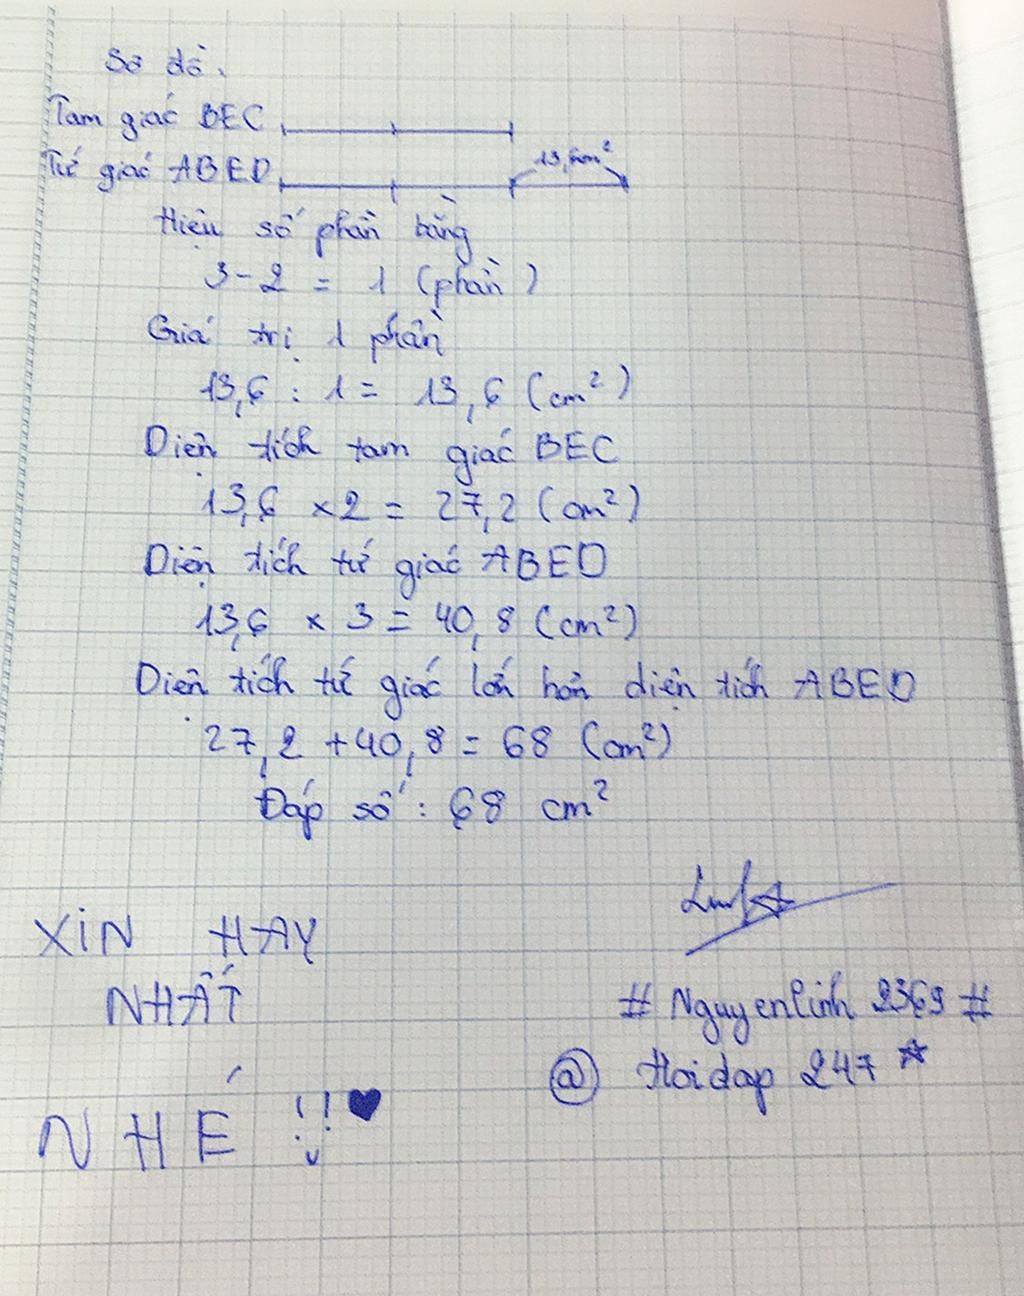 Sơ đồ.
Tam giác BEC
Tứ giác ABED 13,6cm²
Hiệu số phần bằng
3 - 2 = 1 (phần)
Giá trị 1 phần
13,6 : 1 = 13,6 (cm²)
Diện tích tam giác BEC
13,6 x 2 = 27,2 (cm²)
Diện tích tứ giác ABED
13,6 x 3 = 40,8 (cm²)
Diện tích tứ giác lớn hơn diện tích ABED
27,2 + 40,8 = 68 (cm²)
Đáp số : 68 cm²
XIN HAY
NHẤT
NHÉ !! ♥
# Nguyenlinh 2369 #
@ Hoidap 247 ☆